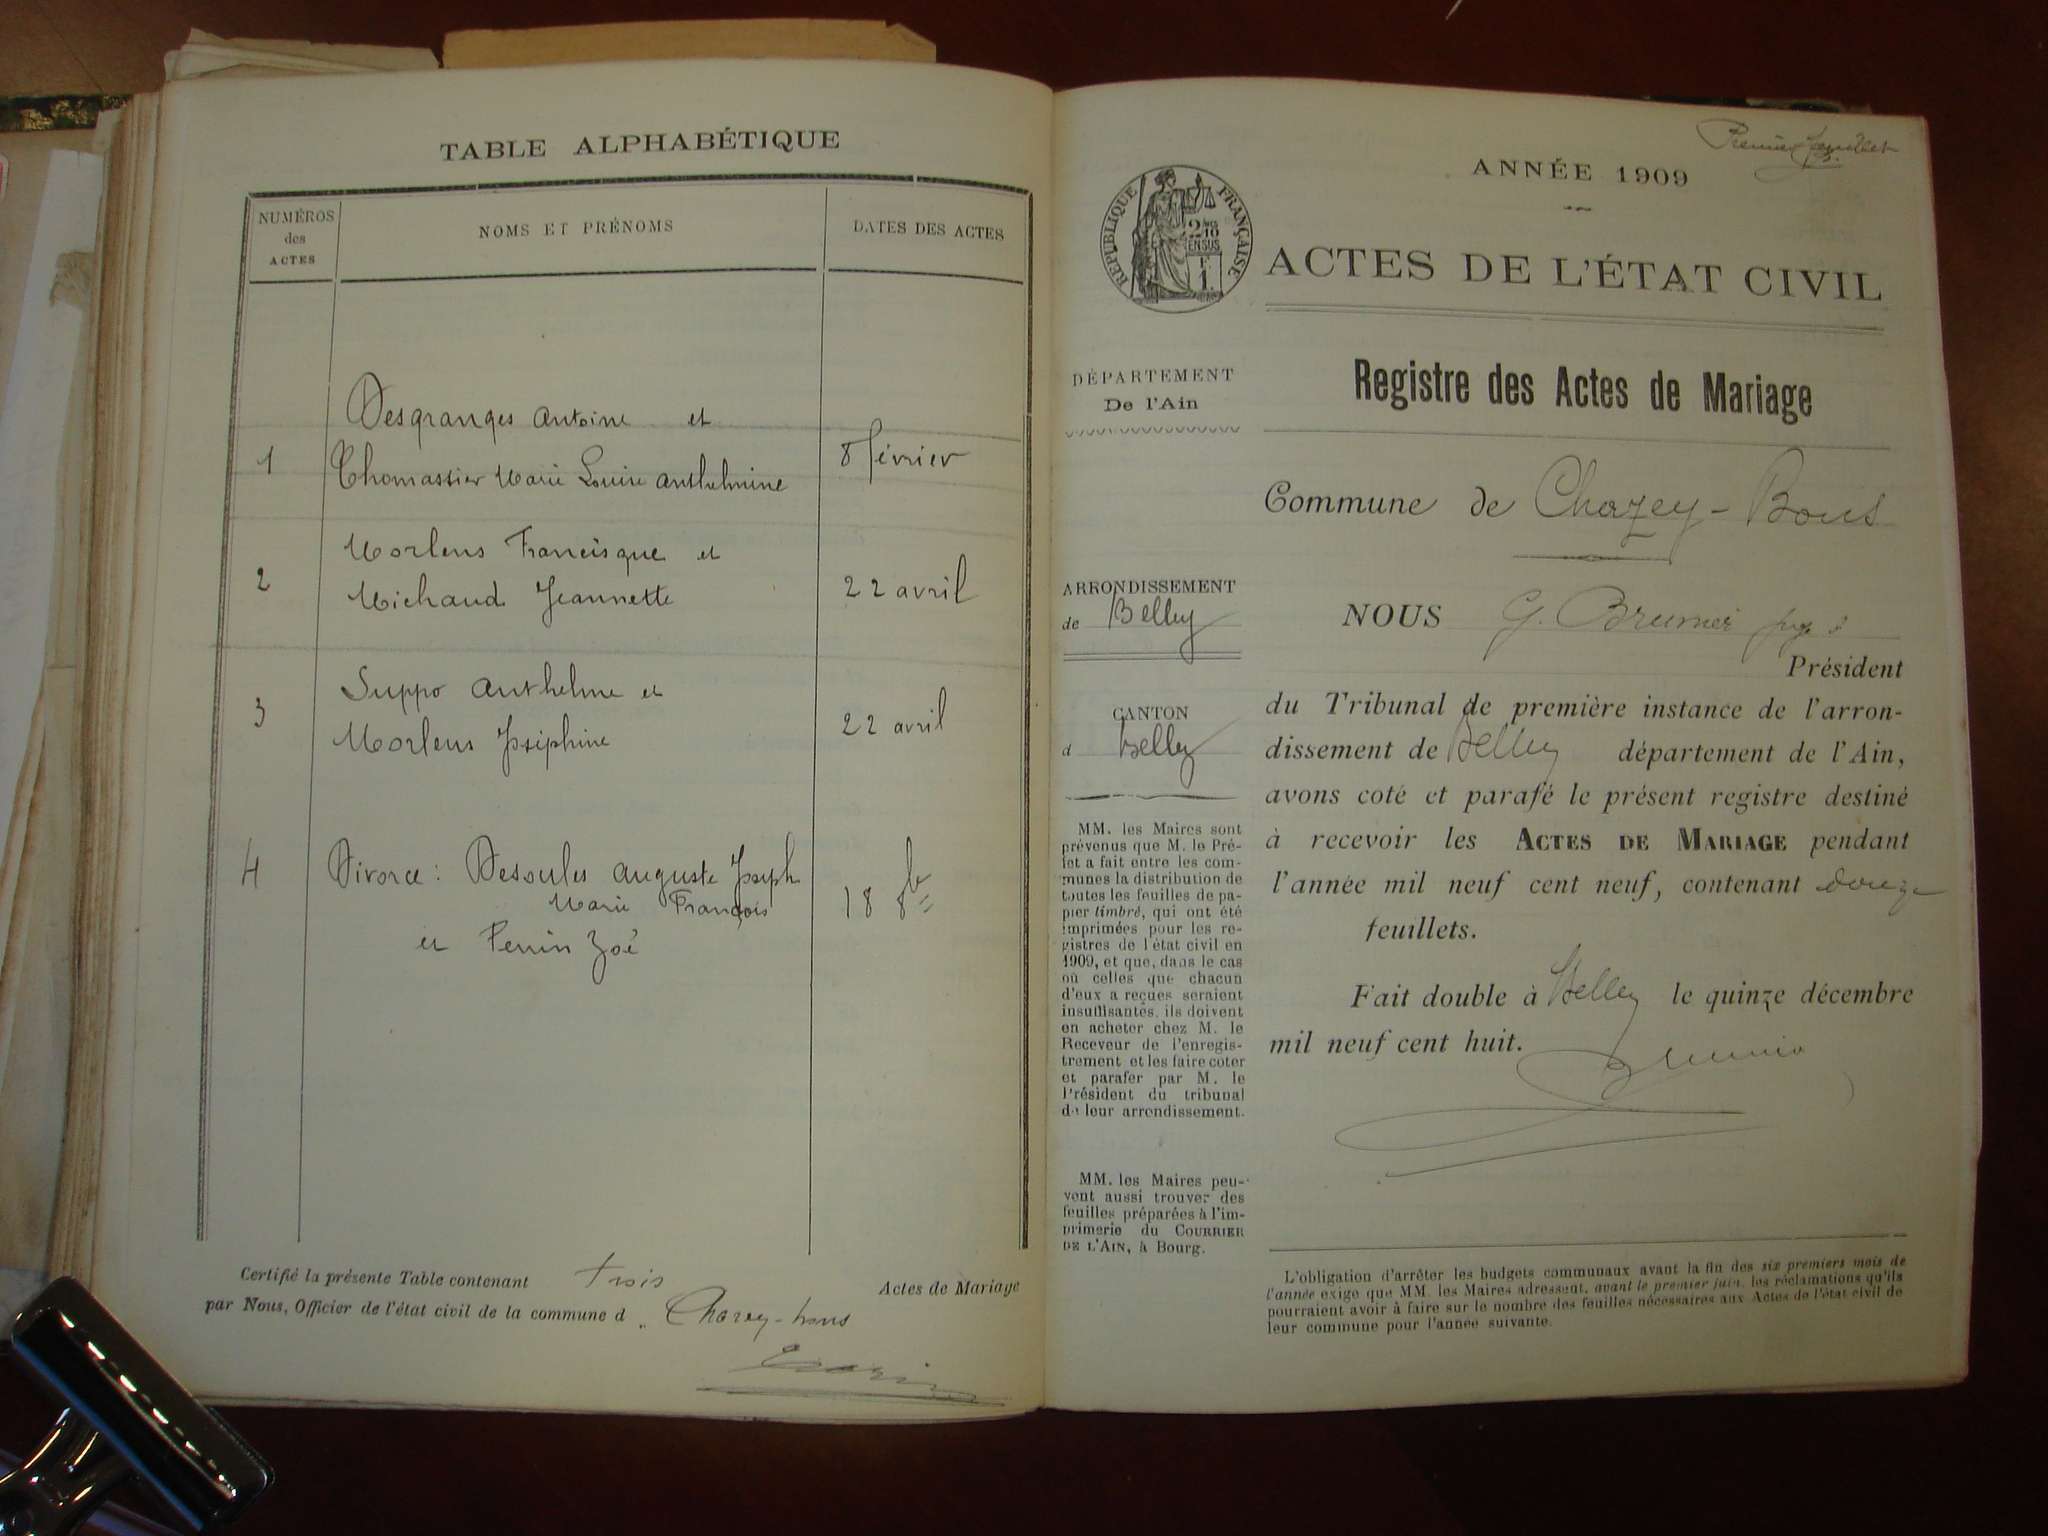 TABLE ALPHABÉTIQUE
NUMÉROS
des
ACTES
NOMS ET PRÉNOMS
DATES DES ACTES
Desgranges Antoine et
1 Thomassier Marie Louise Anthelmine 8 février
Morlens Francisque et
2 Michaud Jeannette 22 avril
Suppo Anthelme et
3 Morlens Joséphine 22 avril
4 Divorce : Desoules Auguste Joseph
Marie François 18 8bre
et Perrin Zoé
Certifié la présente Table contenant trois Actes de Mariage
par Nous, Officier de l'état civil de la commune d Chazey-bons
Premier feuillet
ANNÉE 1909
RÉPUBLIQUE FRANÇAISE
2 /10
EN SUS
F.
1.
ACTES DE L'ÉTAT CIVIL
DÉPARTEMENT
De l'Ain
Registre des Actes de Mariage
Commune de Chazey-Bons
ARRONDISSEMENT
de Belley
CANTON
d Belley
MM. les Maires sont
prévenus que M. le Pré-
fet a fait entre les com-
munes la distribution de
toutes les feuilles de pa-
pier timbré, qui ont été
imprimées pour les re-
gistres de l'état civil en
1909, et que, dans le cas
où celles que chacun
d'eux a reçues seraient
insuffisantes, ils doivent
en acheter chez M. le
Receveur de l'enregis-
trement et les faire coter
et parafer par M. le
Président du tribunal
de leur arrondissement.
MM. les Maires peu-
vent aussi trouver des
feuilles préparées à l'im-
primerie du COURRIER
DE L'AIN, à Bourg.
NOUS G. Brunier
Président
du Tribunal de première instance de l'arron-
dissement de Belley département de l'Ain,
avons coté et parafé le présent registre destiné
à recevoir les ACTES DE MARIAGE pendant
l'année mil neuf cent neuf, contenant douze
feuillets.
Fait double à Belley le quinze décembre
mil neuf cent huit.
Brunier
L'obligation d'arrêter les budgets communaux avant la fin des six premiers mois de
l'année exige que MM. les Maires adressent, avant le premier juin, les réclamations qu'ils
pourraient avoir à faire sur le nombre des feuilles nécessaires aux Actes de l'état civil de
leur commune pour l'année suivante.